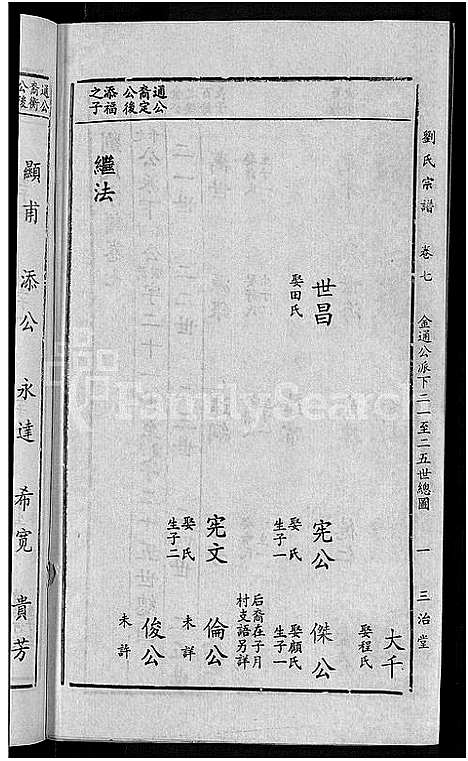 劉氏宗譜
卷七
金通公派下二一至二五世總圖
一
三治堂
大千
娶程氏
世昌
娶田氏
宪公
娶氏
生子一
傑公
娶顏氏
生子一
后裔在子月
村支語另詳
宪文
娶氏
生子二
倫公
未詳
俊公
未詳
通公
裔定
公後
添福
之子
繼法
通公
裔衡
公後
顯甫添公永達希宽貴芳
FamilySearch